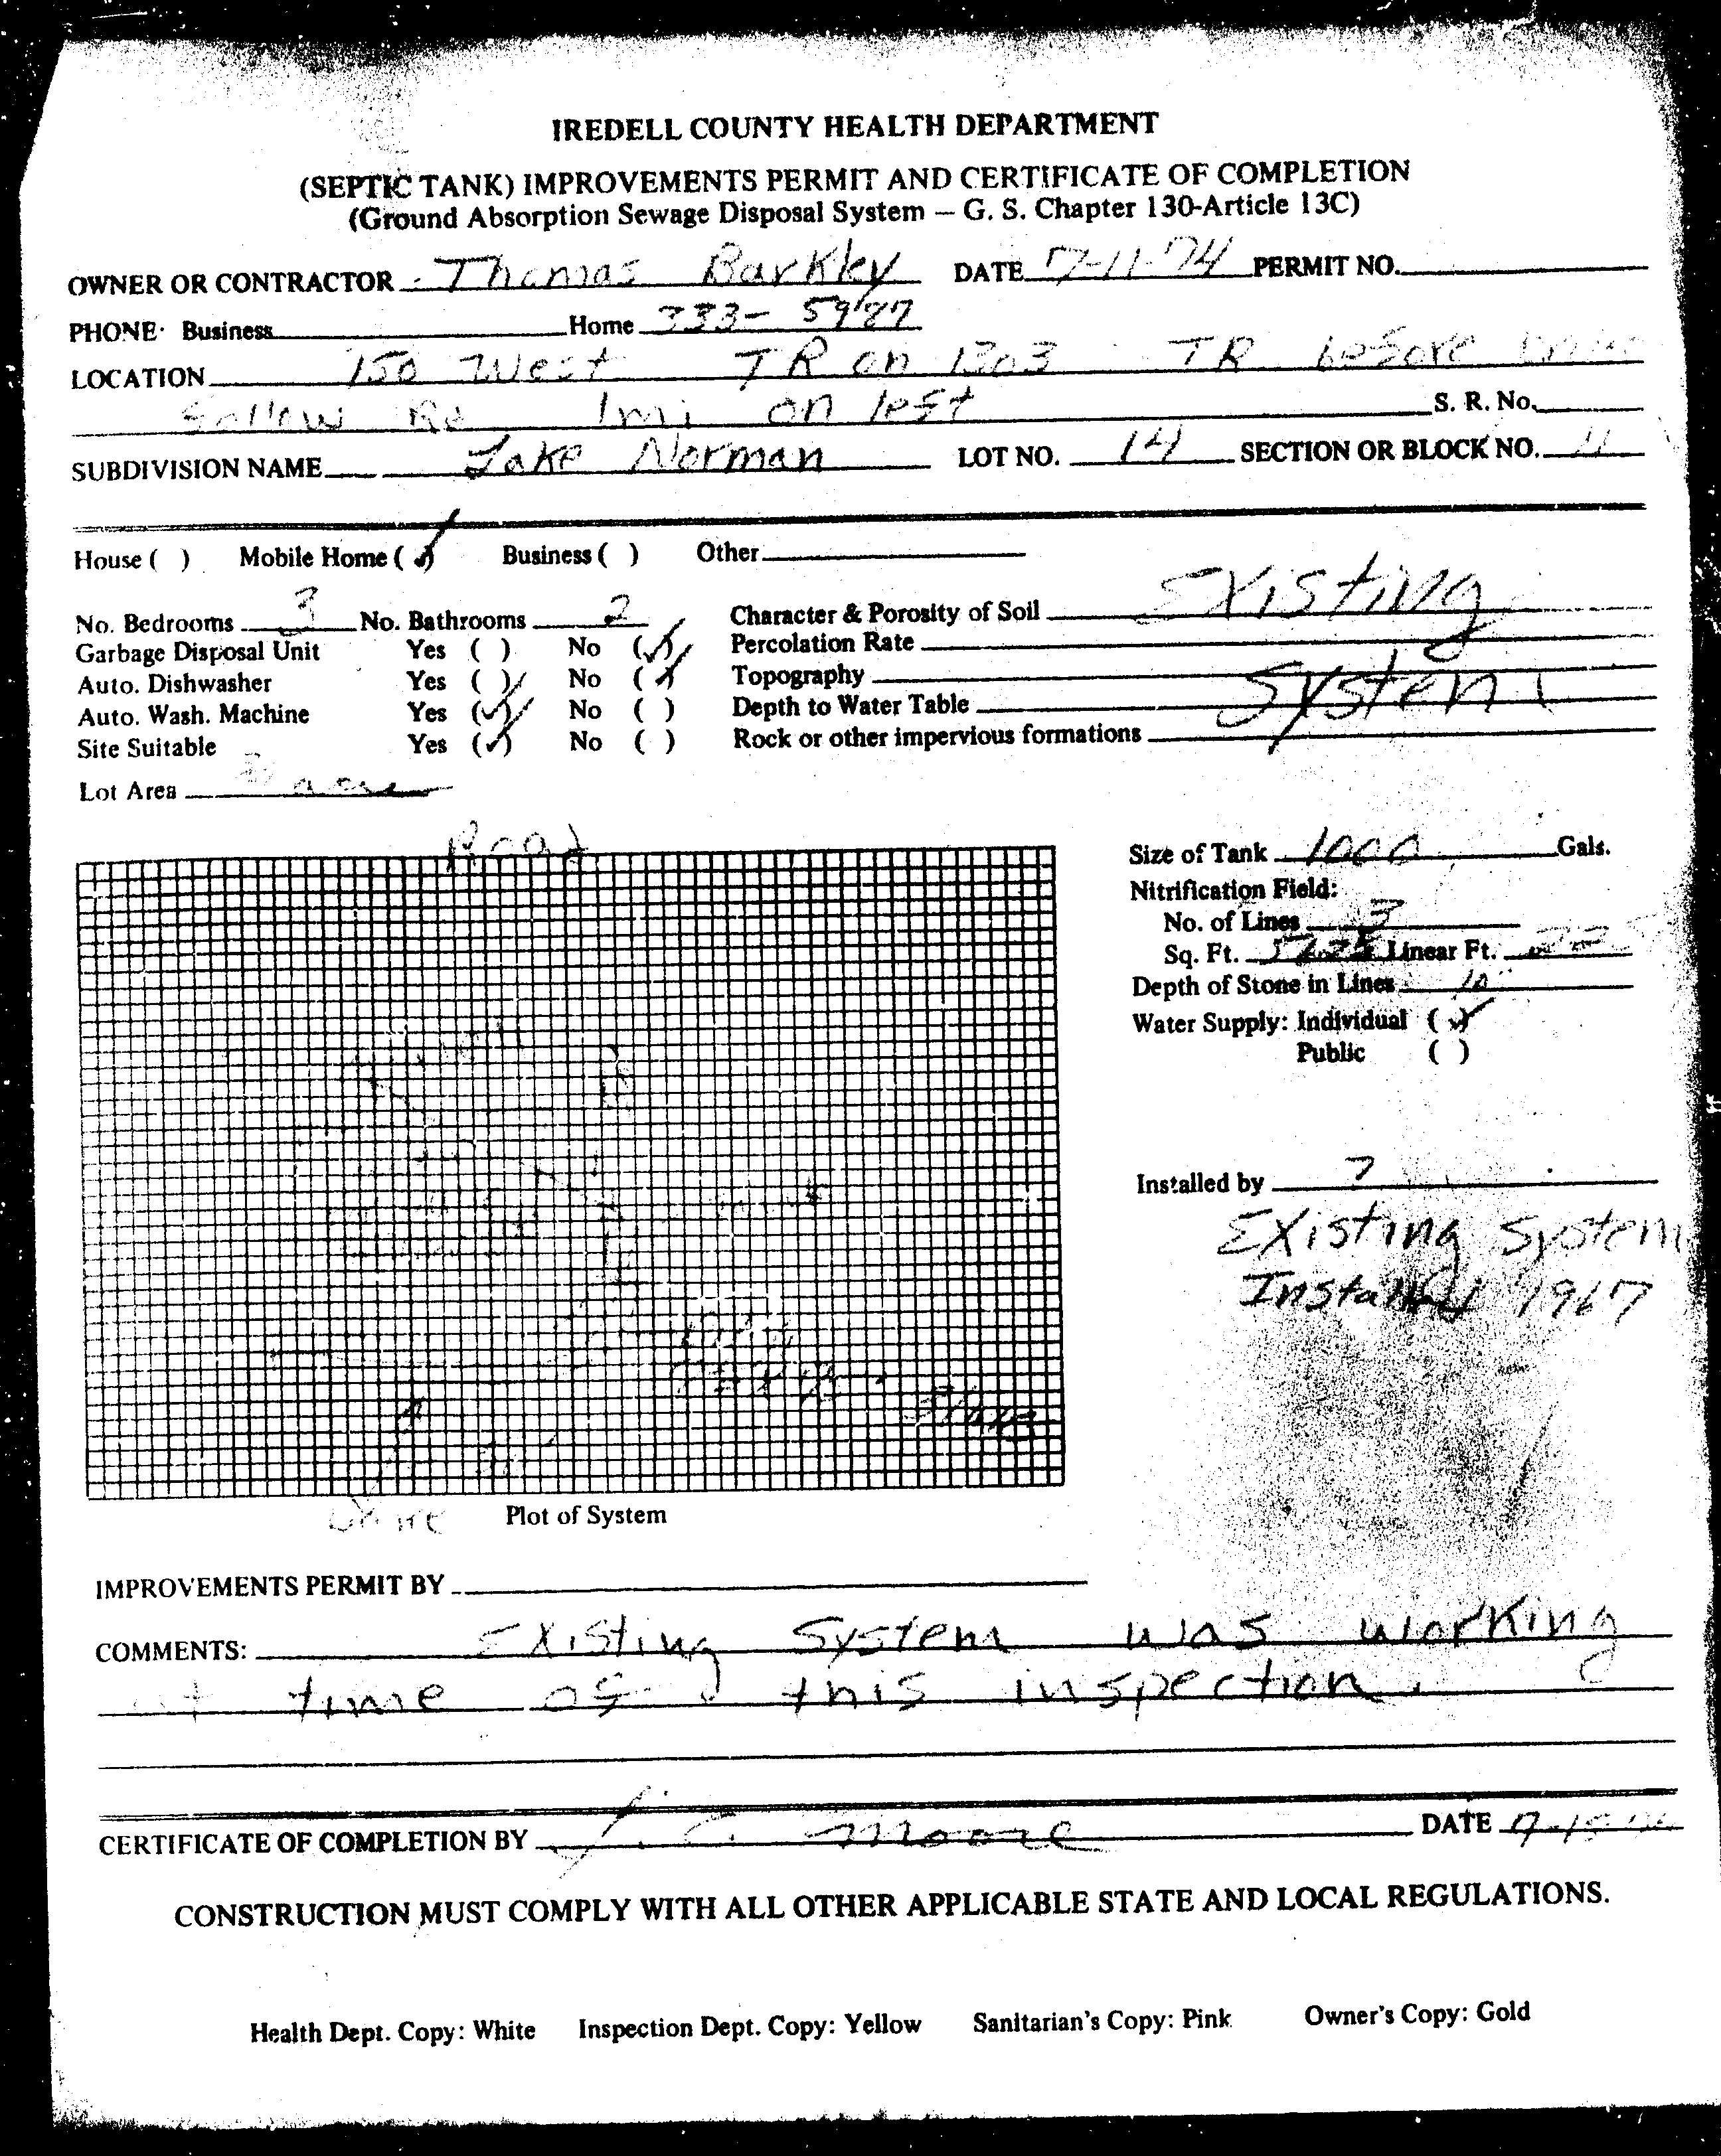 IREDELL COUNTY HEALTH DEPARTMENT
(SEPTIC TANK) IMPROVEMENTS PERMIT AND CERTIFICATE OF COMPLETION
(Ground Absorption Sewage Disposal System — G. S. Chapter 130-Article 13C)
OWNER OR CONTRACTOR Thomas Barkley DATE 7-11-74 PERMIT NO.
PHONE: Business Home 333-5987
LOCATION 150 West TR on 1303 TR before
Rd 1mi on left S. R. No.
SUBDIVISION NAME Lake Norman LOT NO. 14 SECTION OR BLOCK NO. 11
House ( ) Mobile Home (✓) Business ( ) Other
No. Bedrooms 3 No. Bathrooms 2 Character & Porosity of Soil Existing
Garbage Disposal Unit Yes ( ) No (✓) Percolation Rate
Auto. Dishwasher Yes ( ) No (✓) Topography System
Auto. Wash. Machine Yes (✓) No ( ) Depth to Water Table
Site Suitable Yes (✓) No ( ) Rock or other impervious formations
Lot Area acre
Road
Size of Tank 1000 Gals.
Nitrification Field:
No. of Lines 3
Sq. Ft. Linear Ft.
Depth of Stone in Lines 10"
Water Supply: Individual (✓)
Public ( )
Installed by ?
Existing System
Installed 1967
Plot of System
IMPROVEMENTS PERMIT BY
COMMENTS: Existing System was working
at time of this inspection.
CERTIFICATE OF COMPLETION BY J. C. Moore DATE
CONSTRUCTION MUST COMPLY WITH ALL OTHER APPLICABLE STATE AND LOCAL REGULATIONS.
Health Dept. Copy: White Inspection Dept. Copy: Yellow Sanitarian's Copy: Pink Owner's Copy: Gold